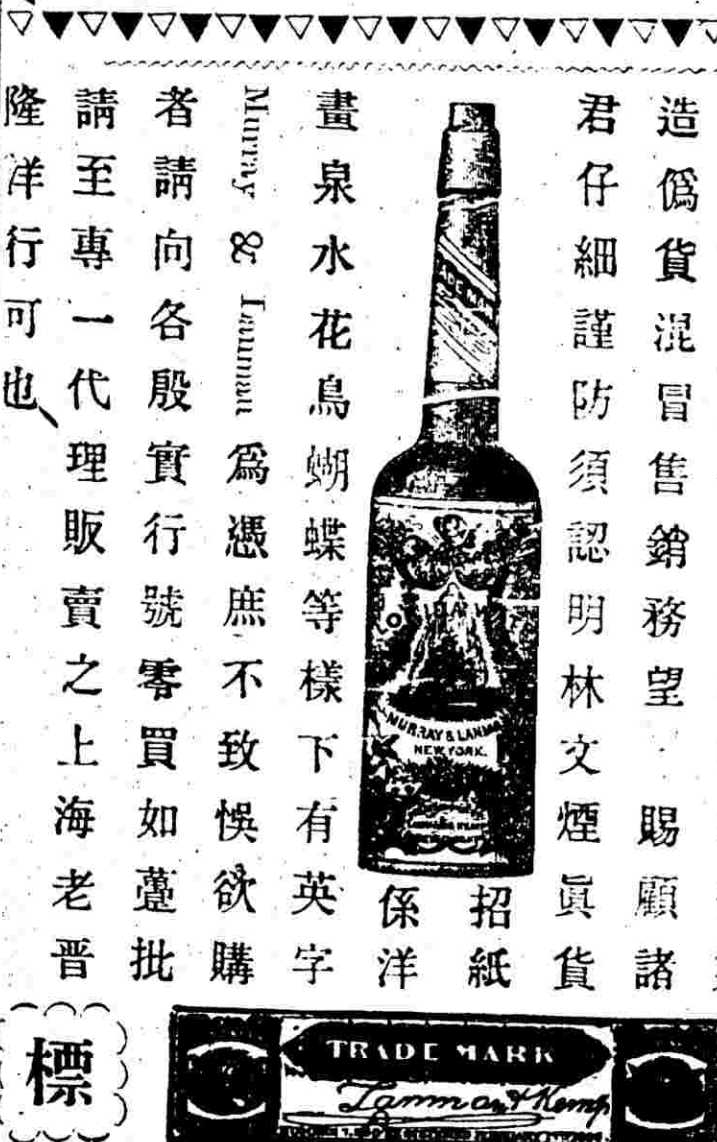 造偽貨混冒售銷務望 賜顧諸
君仔細謹防須認明林文煙眞貨
招紙
係洋
畫泉水花鳥蝴蝶等樣下有英字
Murray & Lanman 爲憑庶不致悞欲購
者請向各殷實行號零買如躉批
請至專一代理販賣之上海老晋
隆洋行可也
MURRAY & LANMAN
NEW YORK.
標
TRADE MARK
Lanman & Kemp